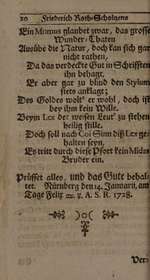 20 Friederich Roth-Scholtzens
Ein Mumus glaubet zwar, das grosse
Wunder-Thaten
Ausübe die Natur, doch kan sich gar
nicht rathen,
Da das verdeckte Gut in Schrifften
ihn behagt.
Er aber gar zu blind den Stylum
stets anklagt;
Des Goldes wolt' er wohl, doch ist
bey ihm kein Wille.
Beym Lex der weisen Leut' zu stehen
heilig stille.
Doch soll nach Coi Sinn diß Lex ge-
halten seyn.
Es tritt durch diese Pfort kein Midas
Bruder ein.
Prüfet alles, und das Gute behal-
tet. Nürnberg den 14. Januarii, am
Tage Felix A. S. R. 1728.
Ver-